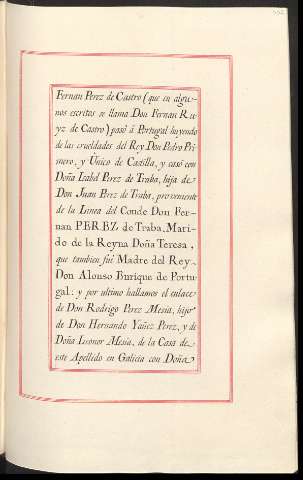 Fernan Perez de Castro (que en algu-
nos escritos se llama Don Fernan Ru-
yz de Castro) pasó á Portugal huyendo
de las crueldades del Rey Don Pedro Pri-
mero, y Unico de Castilla, y casó con
Doña Isabel Perez de Traba, hija de
Don Juan Perez de Traba, proveniente
de la Linea del Conde Don Fer-
nan PEREZ de Traba, Mari-
do de la Reyna Doña Teresa,
que tambien fué Madre del Rey
Don Alonso Enrique de Portu-
gal: y por ultimo hallamos el enlace
de Don Rodrigo Perez Mesia, hijo
de Don Hernando Yañez Perez, y de
Doña Leonor Mesia, de la Casa de
este Apellido en Galicia con Doña